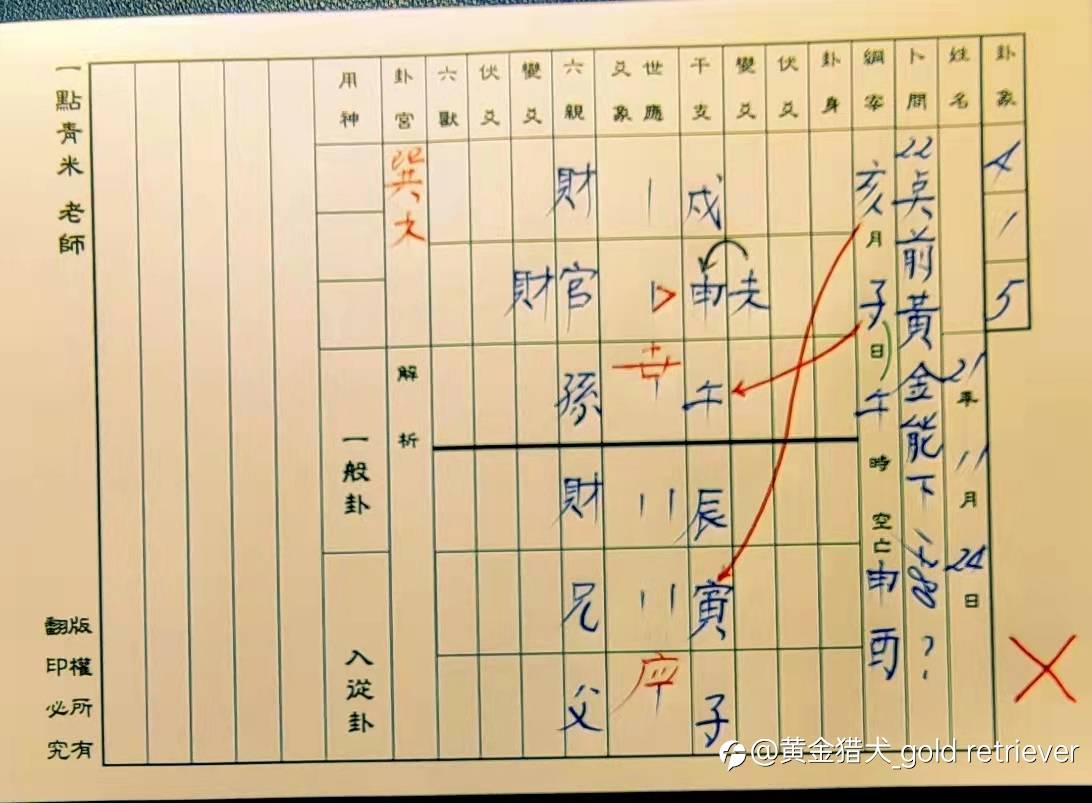 卦象 4 1 5
姓名 21年11月24日
卜問 22点前黃金能下 ?
綱宰 亥月子日午時空亡申酉
卦身
伏爻
變爻
干支 戌申午辰寅子
世應
爻象
六親 財官孫財兄父
變爻 財
伏爻
六獸
卦宮 巽木
解析
用神
一般卦
入從卦
一點青米 老師
版權所有
翻印必究
@黄金猎犬_gold retriever